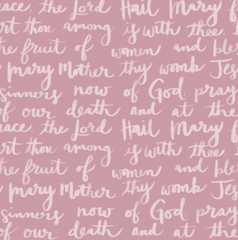 race the Lord Hail Mary f
art thou among is with thee
the fruit of women and bles
Mary Mother thy womb Jes
sinners now of God pray
of our death and at the
race the Lord Hail Mary f
art thou among is with thee
the fruit of women and ble
Mary Mother thy womb Je
sinners now of God pra
of our death and at the